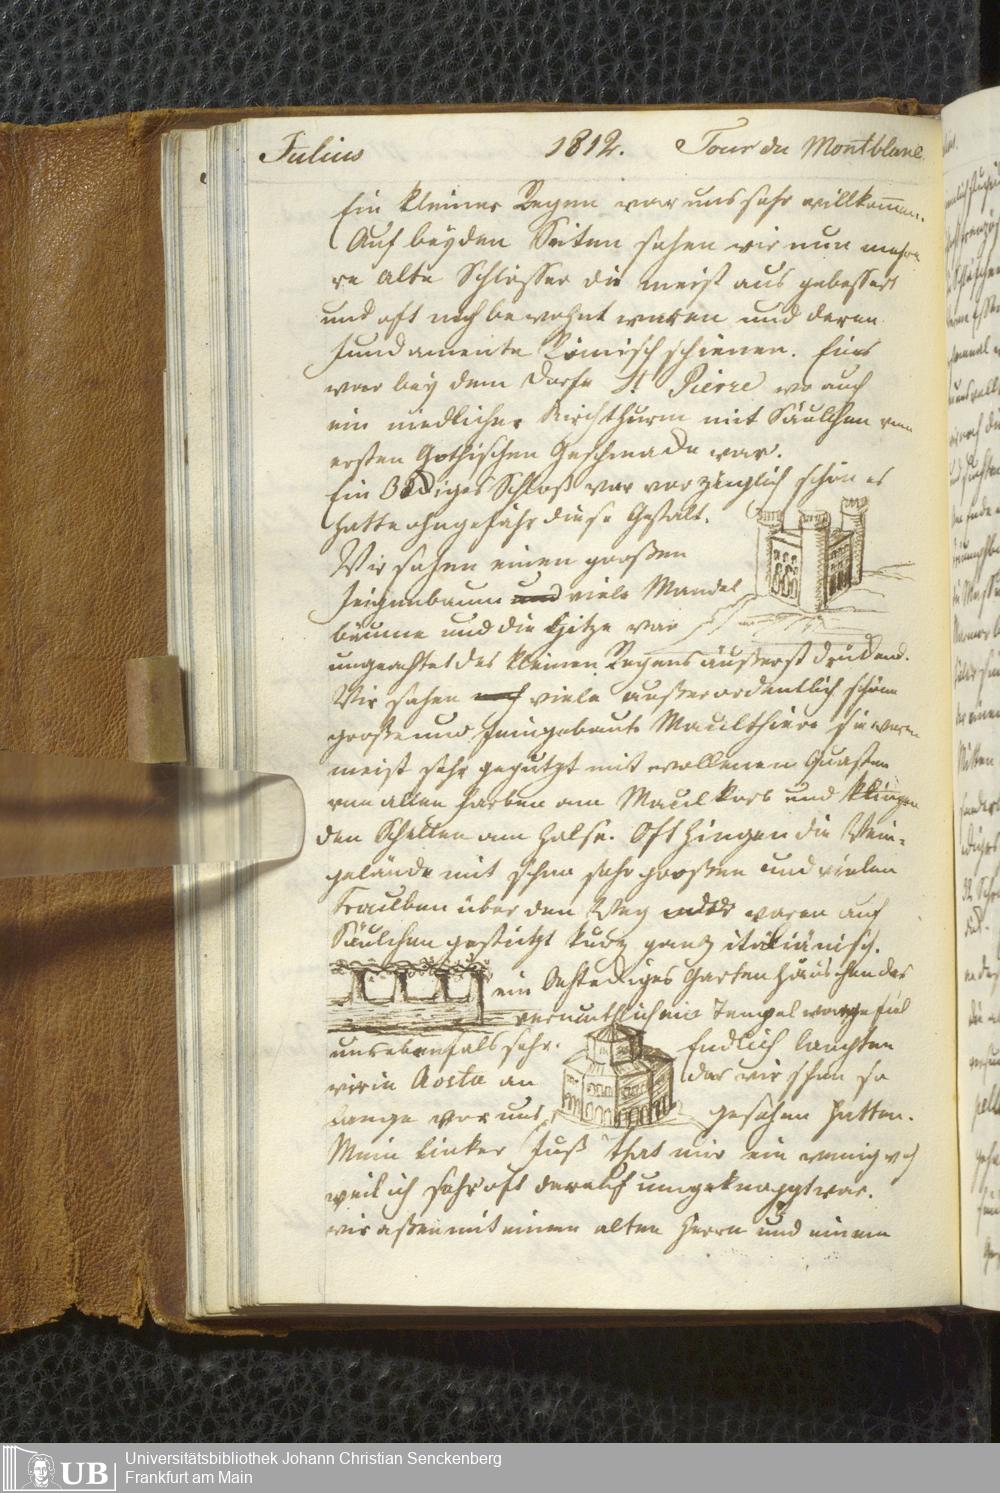 Julius 1812. Tour du Montblanc.
Ein kleiner Regen war uns sehr willkommen.
Auf beyden Seiten sahen wir nun mehre
re alte Schlösser die meist aus gebessert
und oft noch bewohnt waren und deren
fundamente Römisch schienen. Eins
war bey dem Dorfe St Pierre wo auch
ein niedlicher Kirchthurm mit Säulchen vom
ersten Gothischen Geschmack war.
Ein 3 diges Schloß war vorzüglich schön es
hatte ohngefähr diese Gestalt.
Wir sahen einen großen
feigenbaum und viele Mandel
bäume und die Hitze war
ungeachtet des kleinen Regens äußerst drückend.
Wir sahen noch viele außerordentlich schöne
große und feingebaute Maulthiere sie waren
meist sehr geputzt mit wollenen Quasten
von allen farben am Maulkorb und klingen
den Schellen am Halse. Oft hingen die Wein-
gelände mit schon sehr großen und vielen
Trauben über den Weg oder waren auf
Säulchen gestützt kurz ganz italiänisch.
ein Gartenhäuschen das
vermuthlich ein Tempel war gefiel
uns ebenfalls sehr. Endlich langten
wir in Aosta an das wir schon so
lange vor uns gesehen hatten.
Mein linker fuß that mir ein wenig weh
weil ich sehr oft darauf umgeknappt war.
wir aßen mit einem alten Herrn und einem
Universitätsbibliothek Johann Christian Senckenberg
Frankfurt am Main
UB